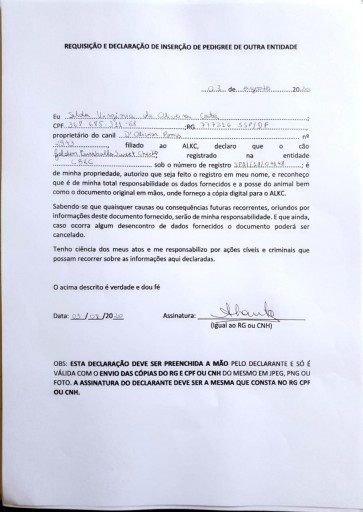 REQUISIÇÃO E DECLARAÇÃO DE INSERÇÃO DE PEDIGREE DE OUTRA ENTIDADE
03 de agosto 2020
Eu Selda Virgínia de Oliveira Costa
CPF ;RG 777226 SSP/DF
proprietário do canil D'Oliveira nº
, filiado ao ALKC, declaro que o cão
Golden Sweet registrado na entidade
CBKC sob o número de registro ; é
de minha propriedade, autorizo que seja feito o registro em meu nome, e reconheço
que é de minha total responsabilidade os dados fornecidos e a posse do animal bem
como o documento original em mãos, onde forneço a cópia digital para o ALKC.
Sabendo-se que quaisquer causas ou consequências futuras recorrentes, oriundos por
informações deste documento fornecido, serão de minha responsabilidade. E que ainda,
caso ocorra algum desencontro de dados fornecidos o documento poderá ser
cancelado.
Tenho ciência dos meus atos e me responsabilizo por ações cíveis e criminais que
possam recorrer sobre as informações aqui declaradas.
O acima descrito é verdade e dou fé
Data: 03 / 08 /2020 Assinatura:
(Igual ao RG ou CNH)
OBS: ESTA DECLARAÇÃO DEVE SER PREENCHIDA A MÃO PELO DECLARANTE E SÓ É
VÁLIDA COM O ENVIO DAS CÓPIAS DO RG E CPF OU CNH DO MESMO EM JPEG, PNG OU
FOTO. A ASSINATURA DO DECLARANTE DEVE SER A MESMA QUE CONSTA NO RG CPF
OU CNH.